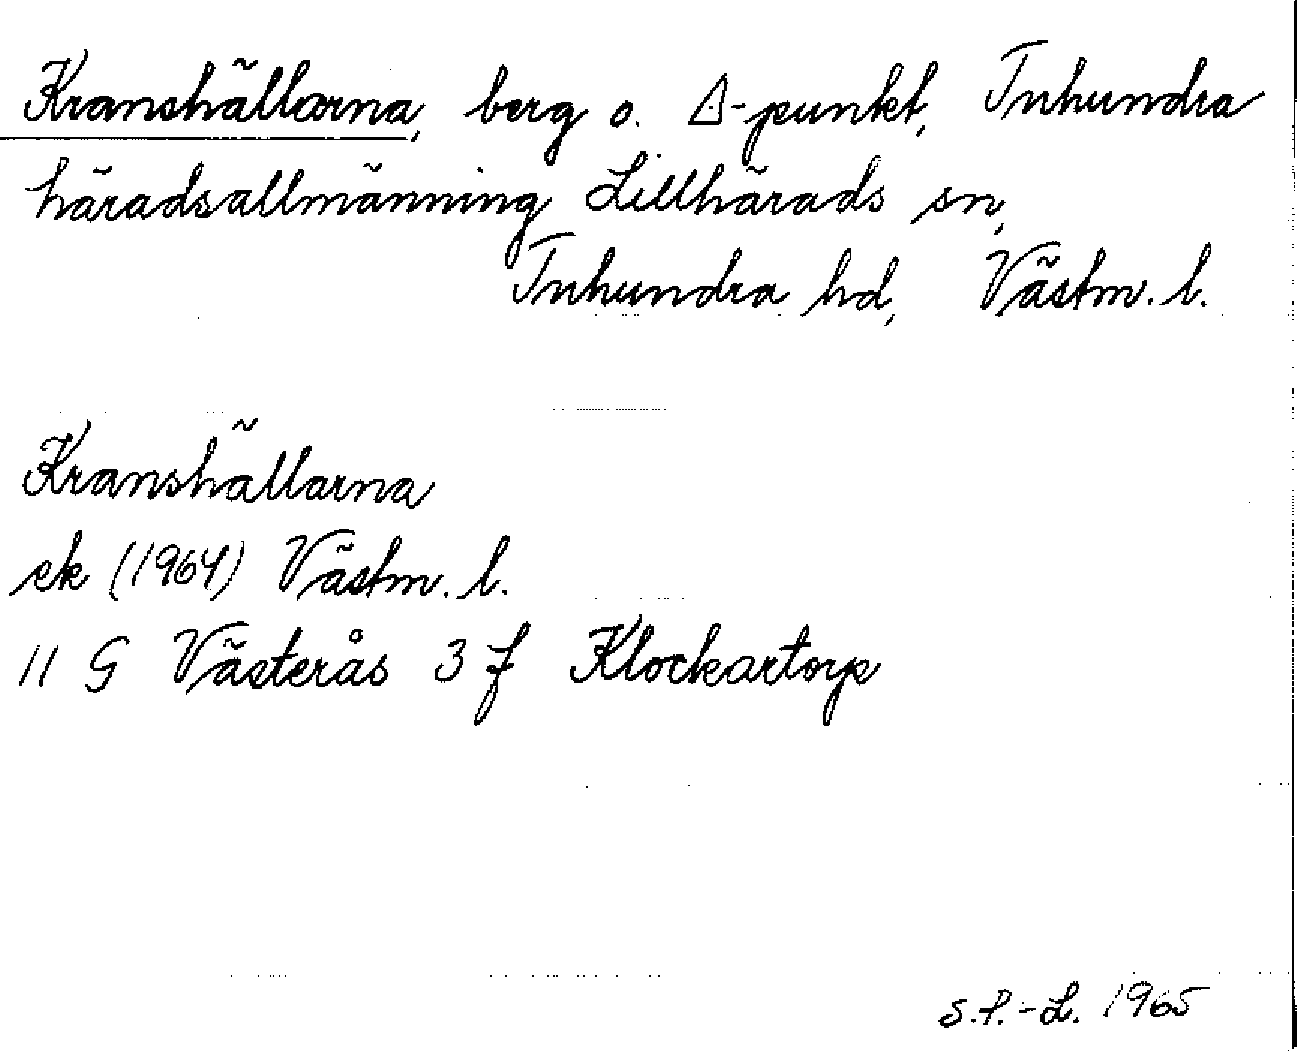 Kranshällarna, berg o. △-punkt, Tuhundra
häradsallmänning Lillhärads sn,
Tuhundra hd, Västm. l.
Kranshällarna
ek (1964) Västm. l.
11 G Västerås 3 f Klockartorp
S.P.-L. 1965